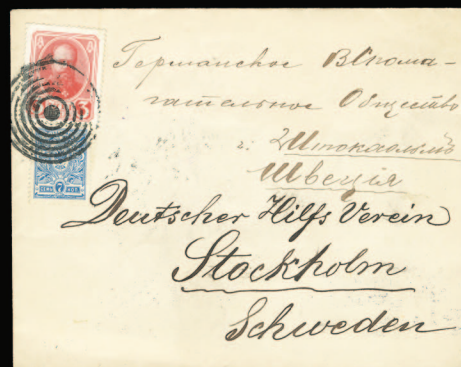 Германское Вспома-
гательное Общество
г. Штокгольмъ
Швеція
Deutscher Hilfs Verein
Stockholm
Schweden
3
7 КОП.